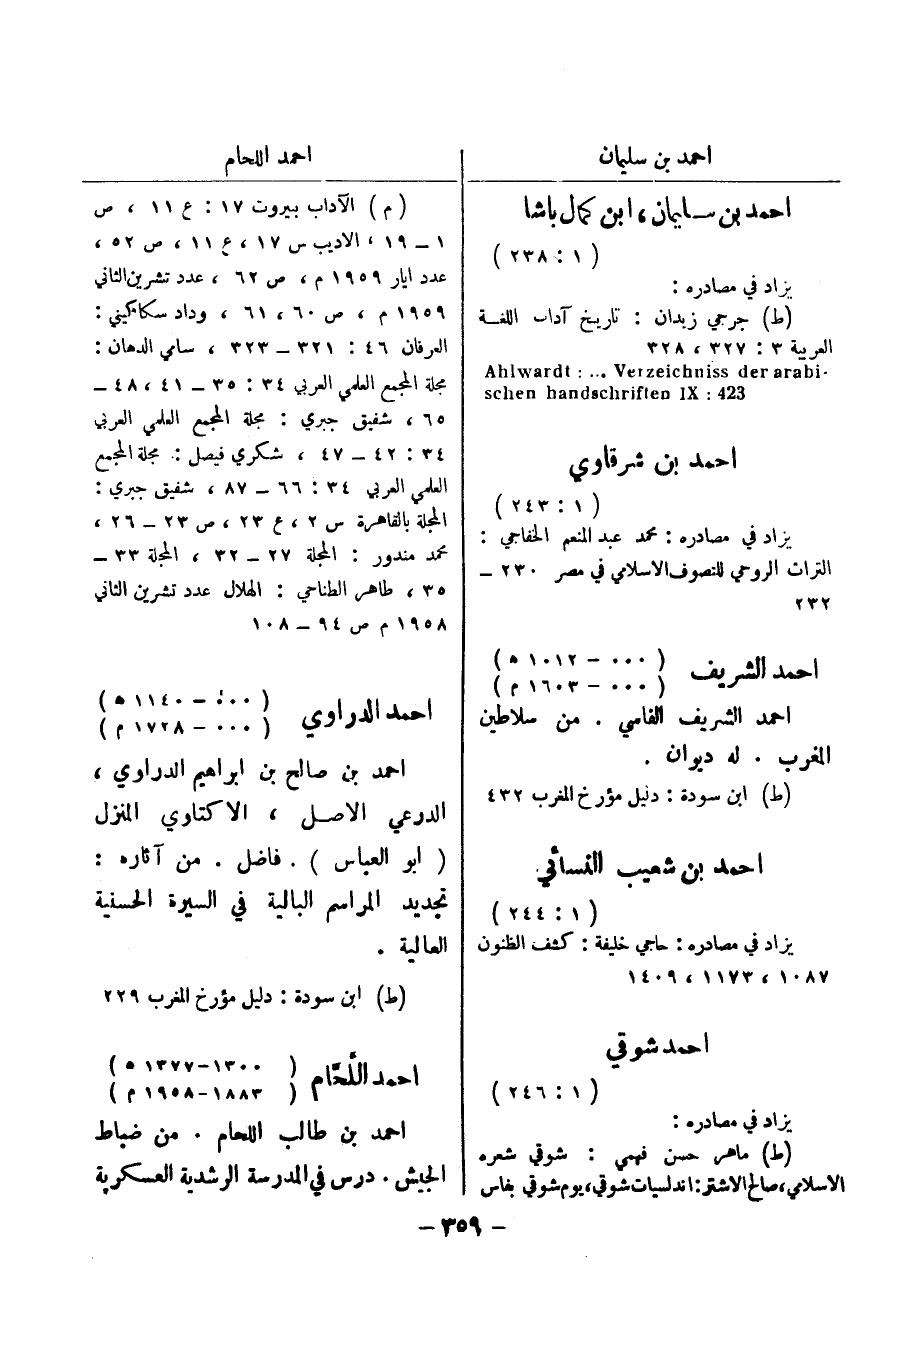 احمد بن سليمان
احمد بن سليمان ، ابن كمال باشا
( ١ : ٢٣٨ )
يزاد في مصادره :
(ط) جرجي زيدان : تاريخ آداب اللغة
العربية ٣ : ٣٢٧ ، ٣٢٨
Ahlwardt : ... Verzeichniss der arabi-
schen handschriften IX : 423
احمد بن شرقاوي
( ١ : ٢٤٣ )
يزاد في مصادره : محمد عبد المنعم الخفاجي :
التراث الروحي للتصوف الاسلامي في مصر ٢٣٠ –
٢٣٢
احمد الشريف ( ٠٠٠ – ١٠١٢ ه )
( ٠٠٠ – ١٦٠٣ م )
احمد الشريف الفاسي . من سلاطين
المغرب . له ديوان .
(ط) ابن سودة : دليل مؤرخ المغرب ٤٣٢
احمد بن شعيب النسائي
( ١ : ٢٤٤ )
يزاد في مصادره : حاجي خليفة : كشف الظنون
١٠٨٧ ، ١١٧٣ ، ١٤٠٩
احمد شوقي
( ١ : ٢٤٦ )
يزاد في مصادره :
(ط) ماهر حسن فهمي : شوقي شعره
الاسلامي ، صالح الاشتر : اندلسيات شوقي ، يوم شوقي بفاس
احمد اللحام
(م) الآداب بيروت ١٧ : ع ١١ ، ص
١ – ١٩ ، الاديب س ١٧ ، ع ١١ ، ص ٥٢ ،
عدد ايار ١٩٥٩ م ، ص ٦٢ ، عدد تشرين الثاني
١٩٥٩ م ، ص ٦٠ ، ٦١ ، وداد سكاكيني :
العرفان ٤٦ : ٣٢١ – ٣٢٣ ، سامي الدهان :
مجلة المجمع العلمي العربي ٣٤ : ٣٥ – ٤١ ، ٤٨ –
٦٥ ، شفيق جبري : مجلة المجمع العلمي العربي
٣٤ : ٤٢ – ٤٧ ، شكري فيصل : مجلة المجمع
العلمي العربي ٣٤ : ٦٦ – ٨٧ ، شفيق جبري :
المجلة بالقاهرة س ٢ ، ع ٢٣ ، ص ٢٣ – ٢٦ ،
محمد مندور : المجلة ٢٧ – ٣٢ ، المجلة ٣٣ –
٣٥ ، طاهر الطناحي : الهلال عدد تشرين الثاني
١٩٥٨ م ص ٩٤ – ١٠٨
احمد الدراوي ( ٠٠٠ – ١١٤٠ ه )
( ٠٠٠ – ١٧٢٨ م )
احمد بن صالح بن ابراهيم الدراوي ،
الدرعي الاصل ، الاكتاوي المنزل
( ابو العباس ) . فاضل . من آثاره :
تجديد المراسم البالية في السيرة الحسنية
العالية .
(ط) ابن سودة : دليل مؤرخ المغرب ٢٢٩
احمد اللَّحَّام ( ١٣٠٠ – ١٣٧٧ ه )
( ١٨٨٣ – ١٩٥٨ م )
احمد بن طالب اللحام . من ضباط
الجيش . درس في المدرسة الرشدية العسكرية
– ٣٥٩ –